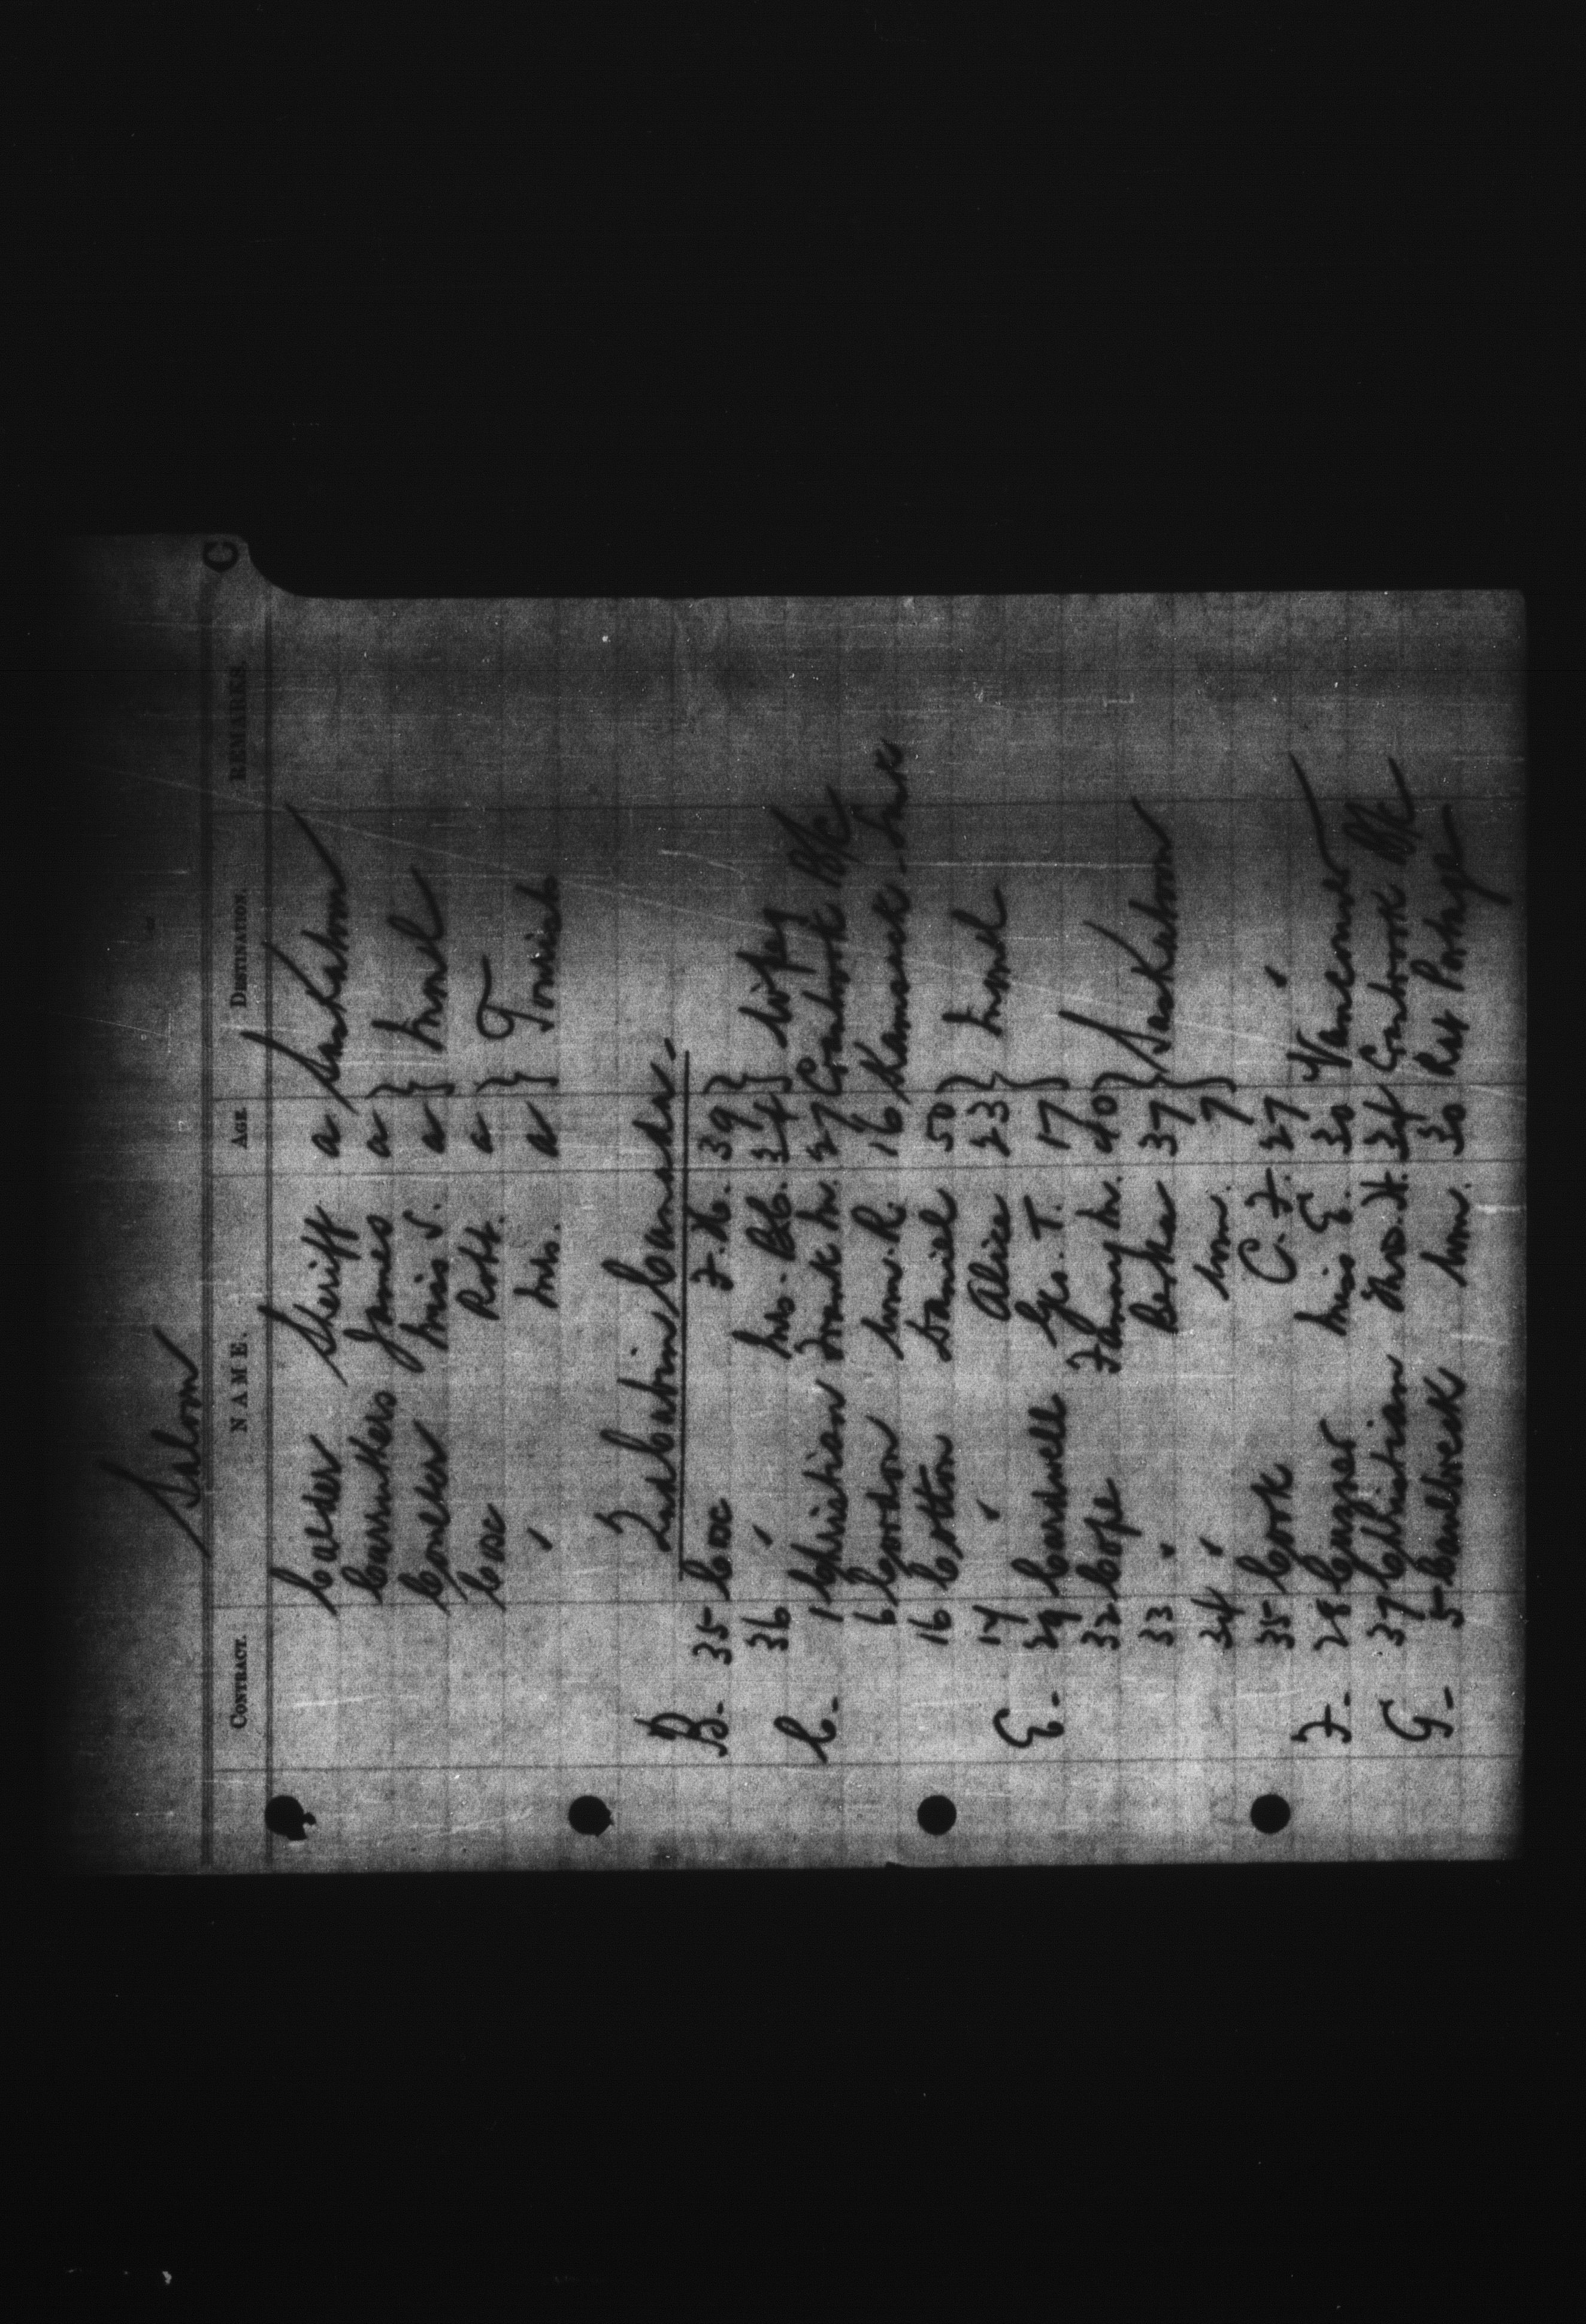 Saloon
C
CONTRACT. NAME. AGE DESTINATION. REMARKS.
Calder Sheriff a Saskatoon
Carruthers James a } Mtrel
Coulter Miss J. a
Cox Robt. a } T
" Mrs. a Tourists
2nd Cabin Canada.
B- 35 Cox F. H. 39 } Wpeg
36 " Mrs. 34
C- 1 Christian Frank M. 27 Cranbrook B/C
6 Cordon Wm. R. 16 Kamsack - Sask
16 Cotton Daniel 50 } Mtrel
17 " Alice 23
E- 29 Cardwell Geo. T. 17
32 Cope Fanny M. 40 } Saskatoon
33 " Bertha 37
34 " Wm. 7
35 Cook C. F. 27 "
F- 28 Miss E. 30 Vancouver
37 Christian Mrs. H. 34 Cranbrook B/C
G- 5 Caulbeck Wm. 30 Rat Portage